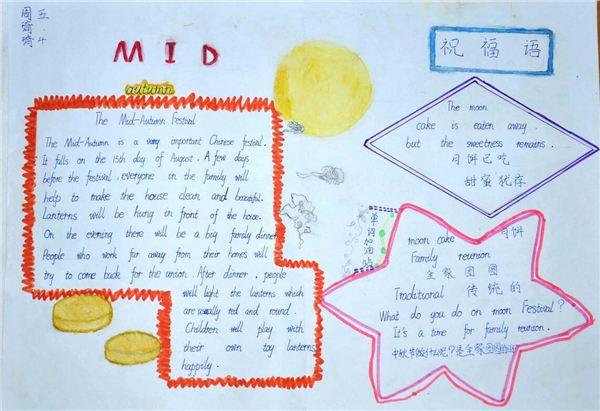 五.4
周
MID
autumn
The Mid-Autumn Festival
The Mid-Autumn is a very important Chinese festival.
It falls on the 15th day of August. A few days
before the festival, everyone in the family will
help to make the house clean and beautiful.
Lanterns will be hung in front of the house.
On the evening there will be a big family dinner.
People who work far away from their homes will
try to come back for the union. After dinner, people
will light the lanterns which
are usually red and round.
Children will play with
their own toy lanterns
happily.
祝福语
The moon
cake is eaten away.
but the sweetness remains.
月饼已吃
甜蜜犹存
单词加油站
moon cake 月饼
Family reunion
全家团圆
Traditional 传统的
What do you do on moon Festival?
It's a time for family reunion.
中秋节做什么呢?是全家团圆的